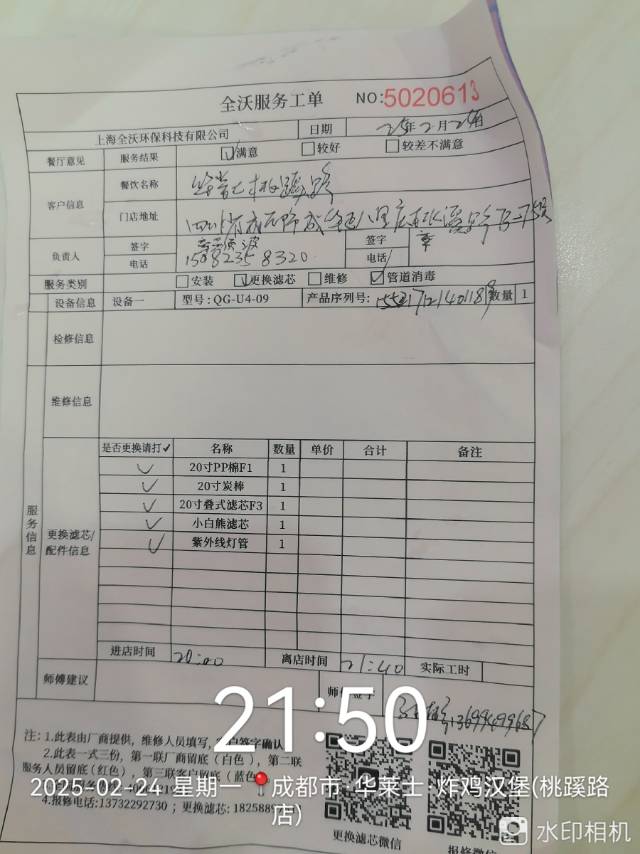 全沃服务工单 NO:5020613
上海全沃环保科技有限公司 日期 25年2月24日
餐厅意见 服务结果 ☑满意 □较好 □较差不满意
客户信息 餐饮名称 华莱士桃蹊路
门店地址
负责人 签字 签字
电话 15882358320 电话
服务类别 □安装 ☑更换滤芯 □维修 ☑管道消毒
设备信息 设备一 型号:QG-U4-09 产品序列号: 数量 1
检修信息
维修信息
服务信息
更换滤芯/配件信息
是否更换请打✓ 名称 数量 单价 合计 备注
✓ 20寸PP棉F1 1
✓ 20寸炭棒 1
✓ 20寸叠式滤芯F3 1
✓ 小白熊滤芯 1
✓ 紫外线灯管 1
进店时间 20:00 离店时间 21:40 实际工时
师傅建议
21:50
注: 1.此表由厂商提供，维修人员填写，签字确认
2.此表一式三份，第一联厂商留底（白色），第二联
服务人员留底(红色)，第三联客户留底（蓝色
2025-02-24 星期一 成都市·华莱士·炸鸡汉堡(桃蹊路
店)
4.报修电话:13732292730；更换滤芯: 18258891
更换滤芯微信 报修微信
水印相机